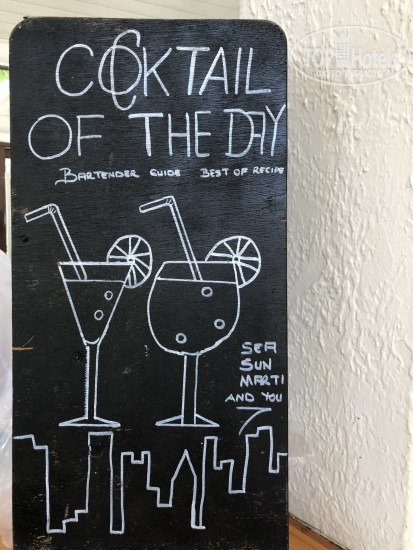 COCKTAIL
OF THE DAY
BARTENDER GUIDE BEST OF RECIPE
SEA
SUN
MARTI
AND YOU
TOP Hotel